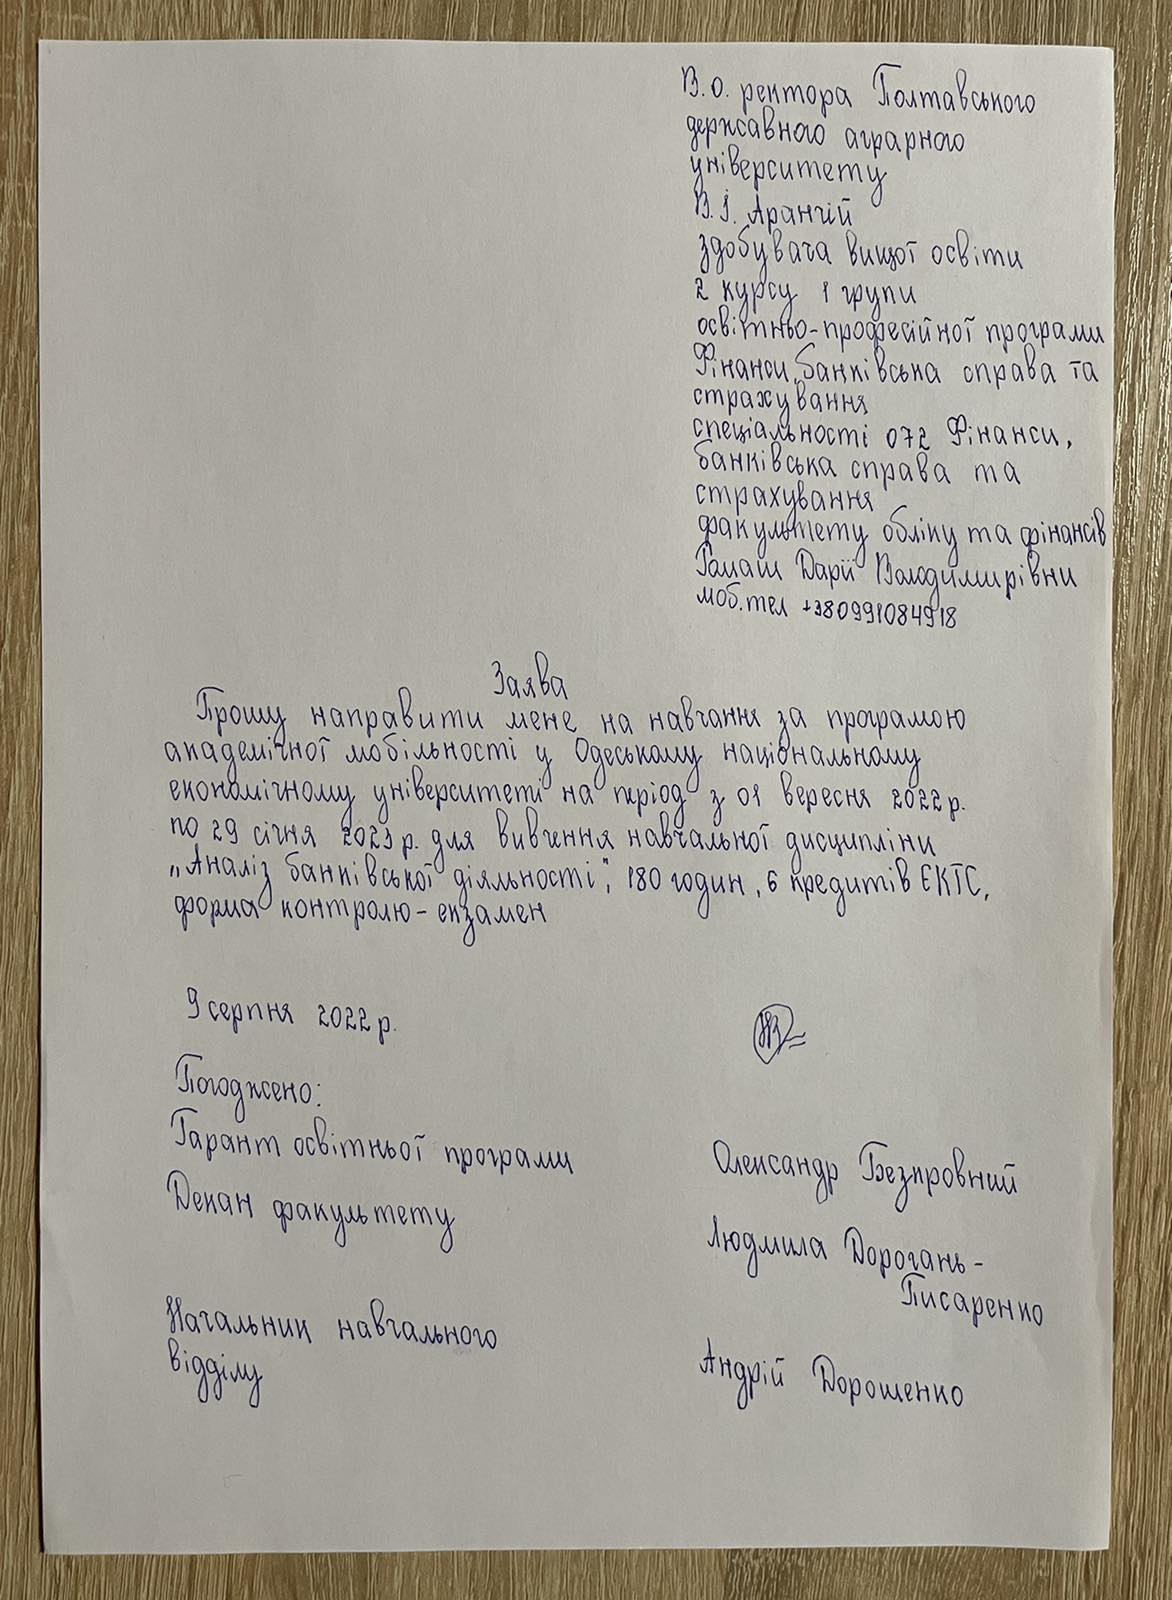 В.о. ректора Полтавського
державного аграрного
університету
В.І. Аранчій
здобувача вищої освіти
2 курсу 1 групи
освітньо-професійної програми
Фінанси, банківська справа та
страхування
спеціальності 072 Фінанси,
банківська справа та
страхування
факультету обліку та фінансів
Дарії Володимирівни
моб.тел +380991084918
Заява
Прошу направити мене на навчання за програмою
академічної мобільності у Одеському національному
економічному університеті на період з 01 вересня 2022р.
по 29 січня 2023р. для вивчення навчальної дисципліни
„Аналіз банківської діяльності", 180 годин, 6 кредитів ЄКТС,
форма контролю - екзамен
9 серпня 2022р.
Погоджено:
Гарант освітньої програми Олександр Безкровний
Декан факультету Людмила Дорогань-
Писаренко
Начальник навчального
відділу Андрій Дорошенко